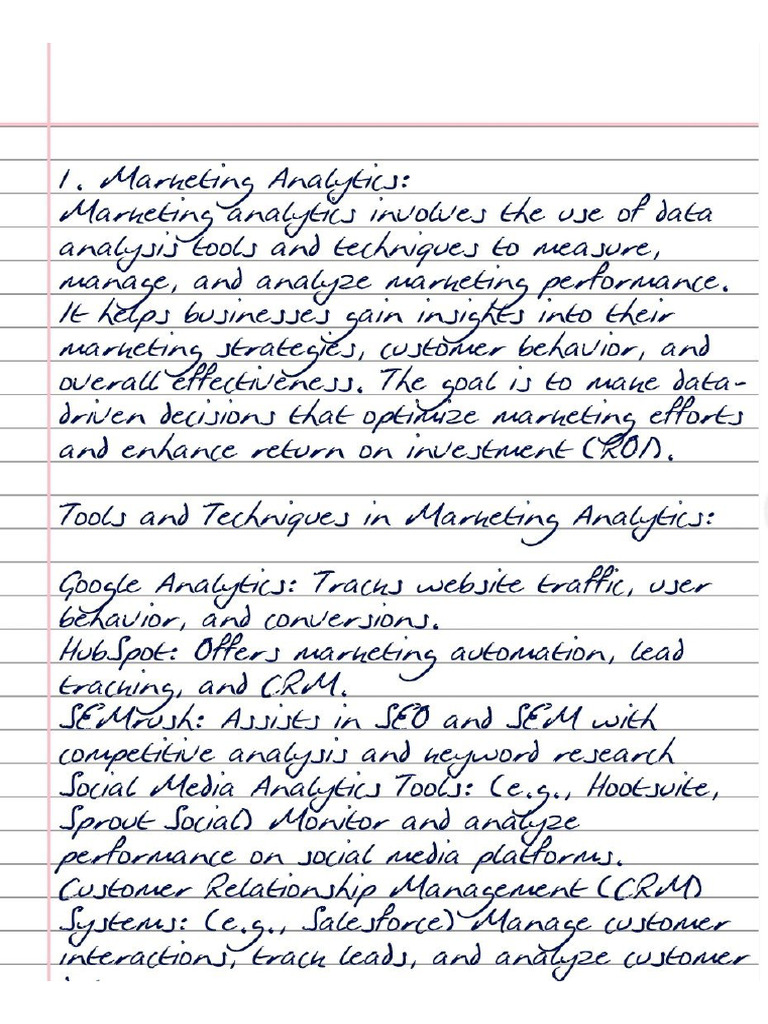 1. Marketing Analytics:
Marketing analytics involves the use of data
analysis tools and techniques to measure,
manage, and analyze marketing performance.
It helps businesses gain insights into their
marketing strategies, customer behavior, and
overall effectiveness. The goal is to make data-
driven decisions that optimize marketing efforts
and enhance return on investment (ROI).
Tools and Techniques in Marketing Analytics:
Google Analytics: Tracks website traffic, user
behavior, and conversions.
HubSpot: Offers marketing automation, lead
tracking, and CRM.
SEMrush: Assists in SEO and SEM with
competitive analysis and keyword research
Social Media Analytics Tools: (e.g., Hootsuite,
Sprout Social) Monitor and analyze
performance on social media platforms.
Customer Relationship Management (CRM)
Systems: (e.g., Salesforce) Manage customer
interactions, track leads, and analyze customer